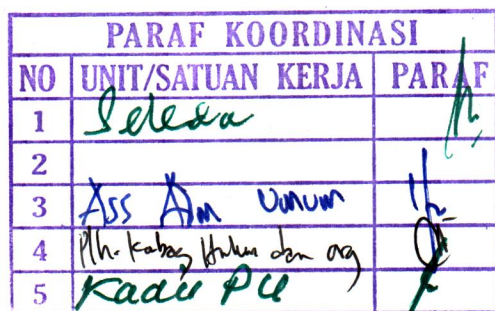 PARAF KOORDINASI
NO UNIT/SATUAN KERJA PARAF
1 Sekda
2
3 Ass Adm Umum
4 Plh. Kabag Hukum dan org
5 Kadis PU